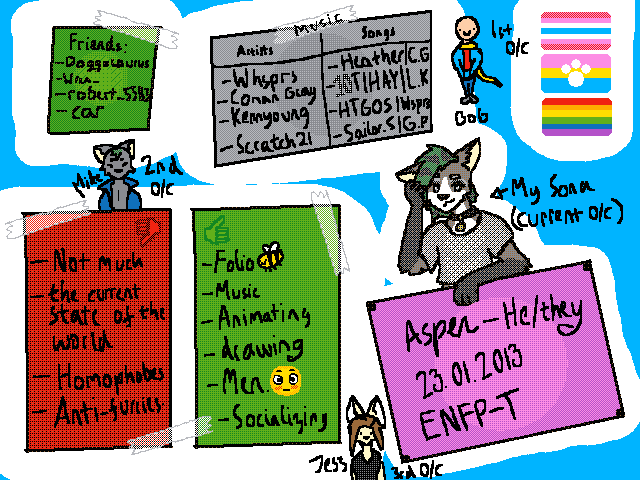 Friends:
-Doggosaurus
-robert_5583
-car
Music
Artists
-Whsprs
-Conan Gray
-Kennyoung
-Scratch21
Songs
-Heather|C.G
|HAY|L.K
-HTGOS|Wsprs
-Sailor.S|G.P
1st
O/C
BoB
Mike
2nd
O/C
<-My Sona
(current O/C)
- Not much
- the current
state of the
world
- Homophobes
- Anti-furries
-Folio
-Music
-Animating
-drawing
-Men.
-Socializing
Aspen-He/they
23.01.2013
ENFP-T
Jess
3rd O/C